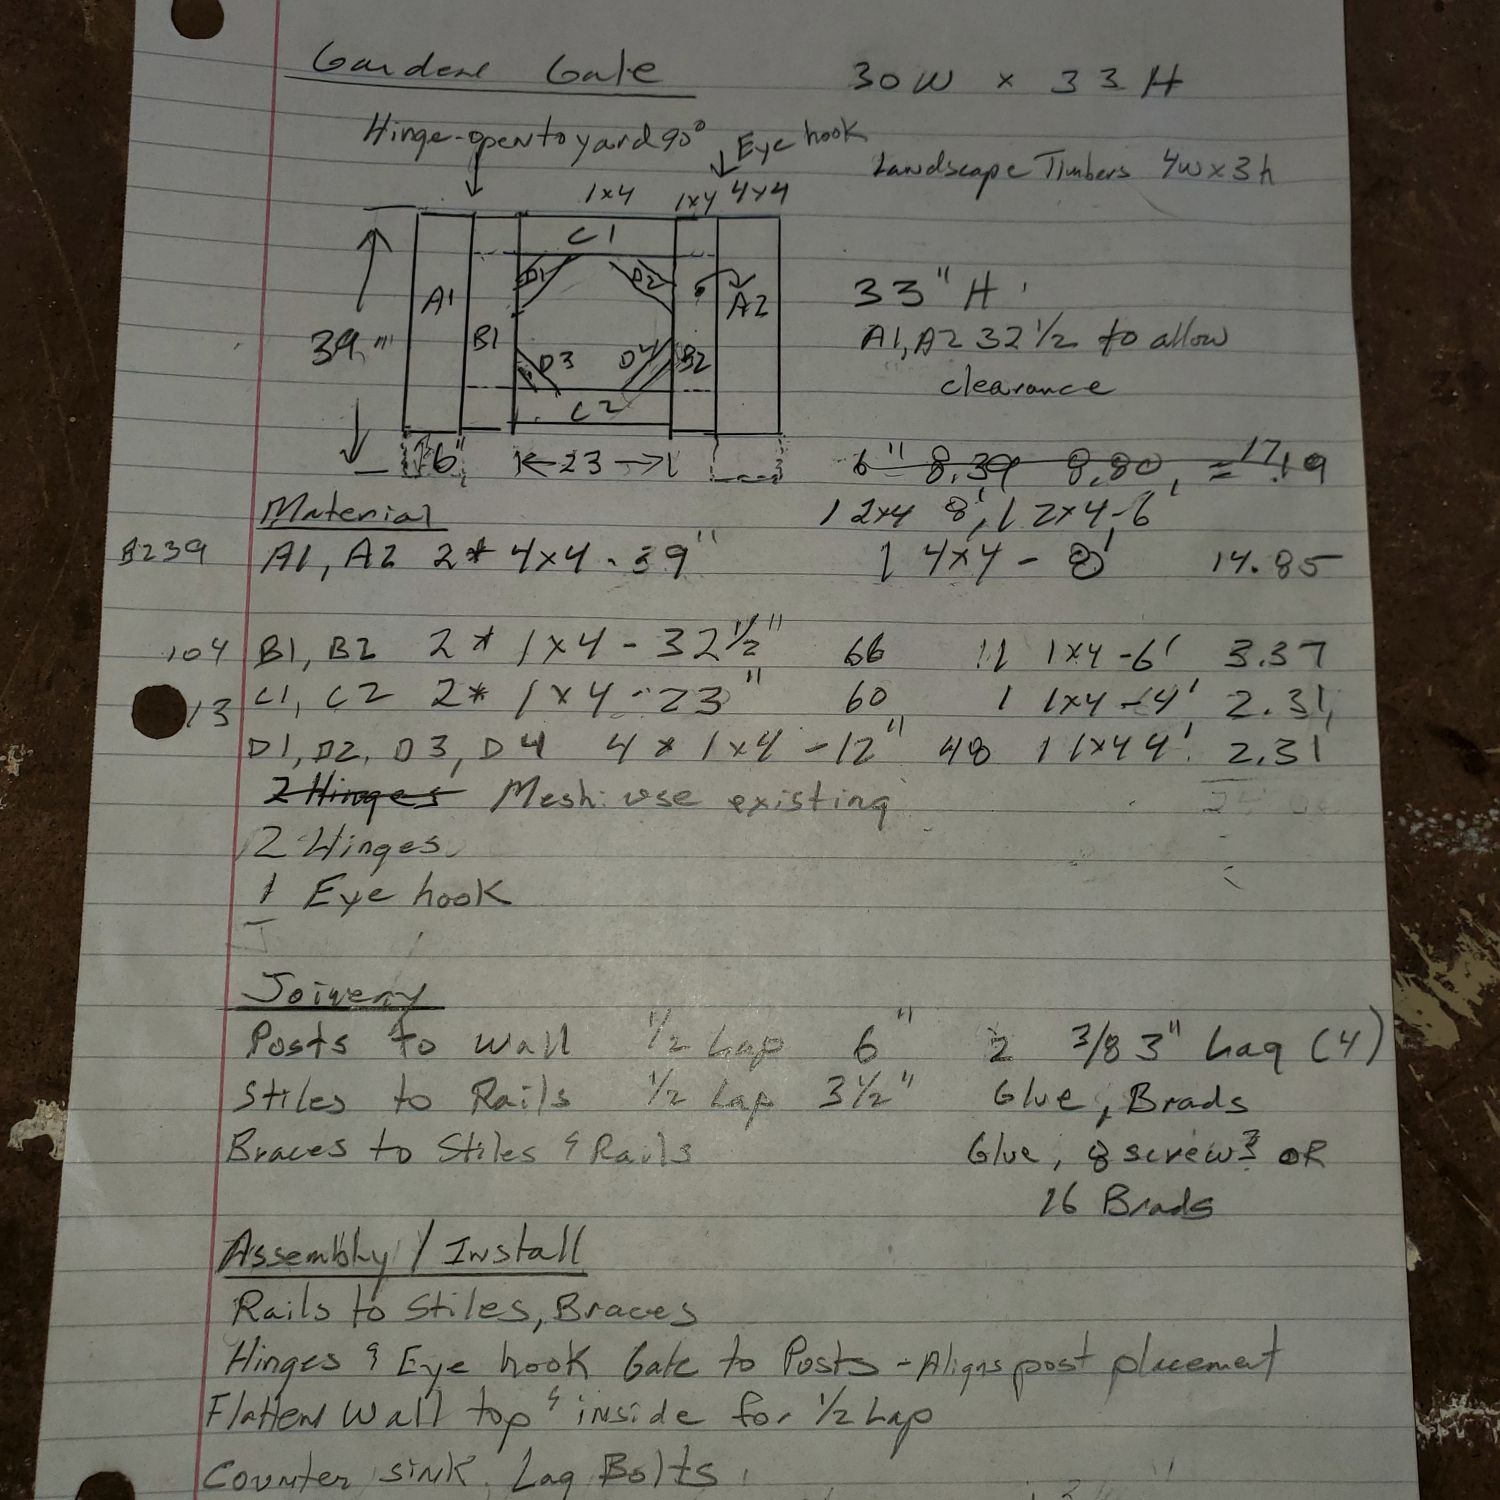 Garden Gate 30W x 33H
Hinge-open to yard 90° Eye hook
Landscape Timbers 4w x 3h
1x4 1x4 4x4
C1
D1 D2
A1 A2
33" H
39"
B1 D3 D4 B2
A1, A2 32 1/2 to allow
clearance
C2
6" 23
6" 8.39 8.80 = 17.19
Material 1 2x4 8', 1 2x4-6'
B239 A1, A2 2* 4x4 - 39" 1 4x4 - 8' 14.85
104 B1, B2 2* 1x4 - 32 1/2" 66 1x4-6' 3.37
13 C1, C2 2* 1x4 - 23" 60 1 1x4-4' 2.31
D1, D2, D3, D4 4* 1x4 - 12" 48 1 1x4 4' 2.31
2 Hinges Mesh: use existing
2 Hinges
1 Eye hook
Joinery
Posts to Wall 1/2 Lap 6" 2 3/8 3" Lag (4)
Stiles to Rails 1/2 Lap 3 1/2" Glue, Brads
Braces to Stiles & Rails Glue, 8 screws OR
16 Brads
Assembly / Install
Rails to Stiles, Braces
Hinges & Eye hook Gate to Posts - Aligns post placement
Flatten Wall top & inside for 1/2 Lap
Counter sink Lag Bolts